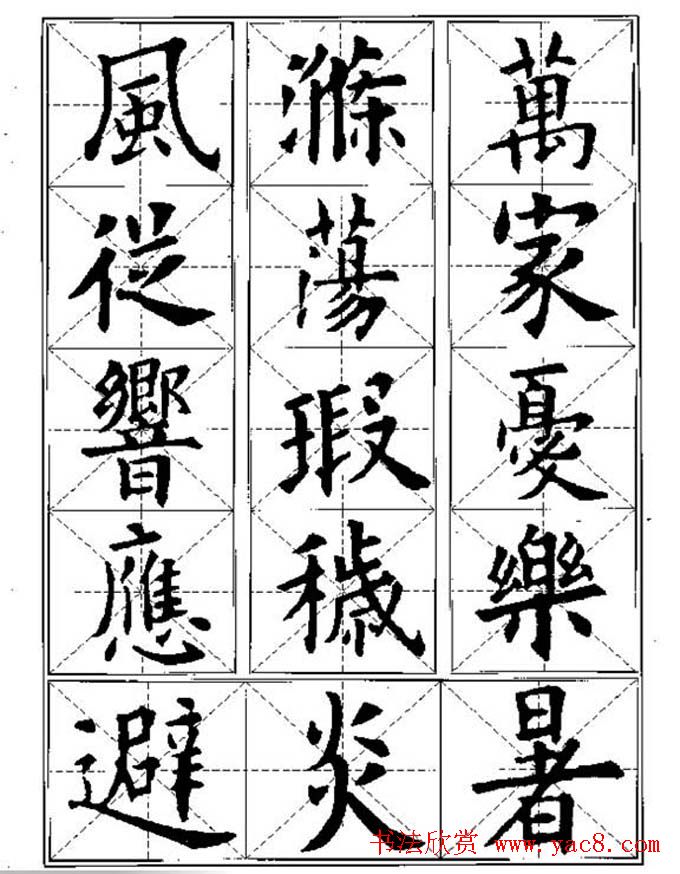 萬家憂樂
滌蕩瑕穢
風從響應
避炎暑
书法欣赏 www.yac8.com